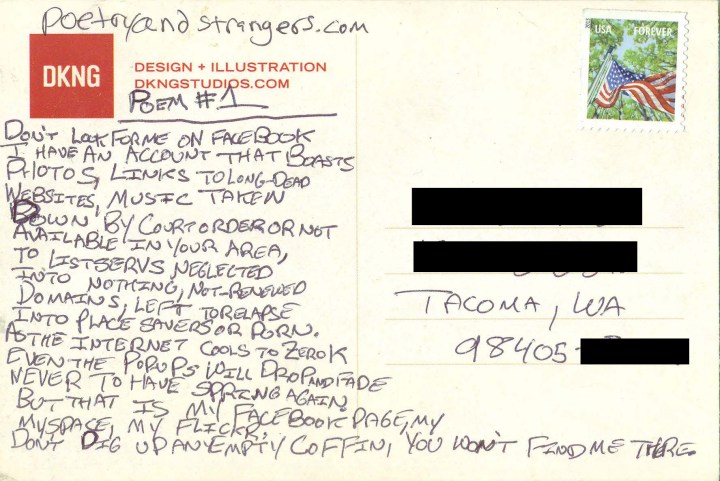 poetryandstrangers.com
DKNG
DESIGN + ILLUSTRATION
DKNGSTUDIOS.COM
POEM #1
USA FOREVER
DON'T LOOK FOR ME ON FACEBOOK
I HAVE AN ACCOUNT THAT BOASTS
PHOTOS, LINKS TO LONG-DEAD
WEBSITES, MUSIC TAKEN
DOWN BY COURT ORDER OR NOT
AVAILABLE IN YOUR AREA,
TO LISTSERVS NEGLECTED
INTO NOTHING, NOT-RENEWED
DOMAINS, LEFT TO RELAPSE
INTO PLACE SAVERS OR PORN.
AS THE INTERNET COOLS TO ZERO K
EVEN THE POPUPS WILL DROP AND FADE
NEVER TO HAVE SPRING AGAIN.
BUT THAT IS MY FACEBOOK PAGE, MY
MYSPACE, MY FLICKR.
DON'T DIG UP AN EMPTY COFFIN, YOU WON'T FIND ME THERE.
TACOMA, WA
98405-